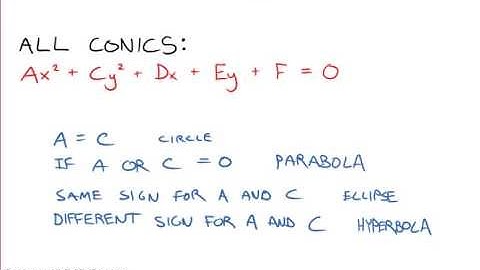 ALL CONICS:
Ax² + Cy² + Dx + Ey + F = 0
A = C CIRCLE
IF A OR C = 0 PARABOLA
SAME SIGN FOR A AND C ELLIPSE
DIFFERENT SIGN FOR A AND C HYPERBOLA